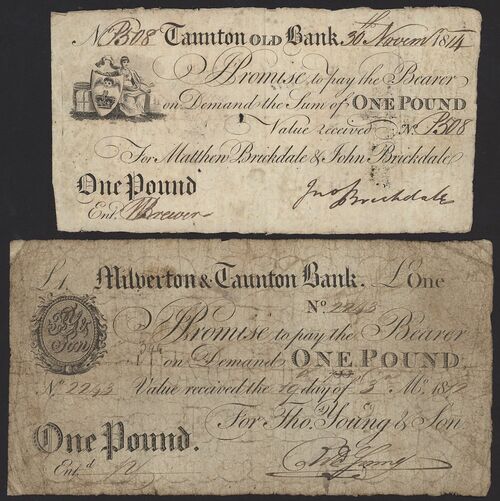 No P508 Taunton OLD Bank. 30th Novem 1814
I Promise to pay the Bearer
on Demand the Sum of ONE POUND
Value received No P508
For Matthew Brickdale & John Brickdale
One Pound
Jno Brickdale
Entd Brewer
£1, Milverton & Taunton Bank. £One
No 2243
I Promise to pay the Bearer
on Demand ONE POUND
No 2243 Value received the 19 day of Mo. 18
For Thos. Young & Son
One Pound.
Entd